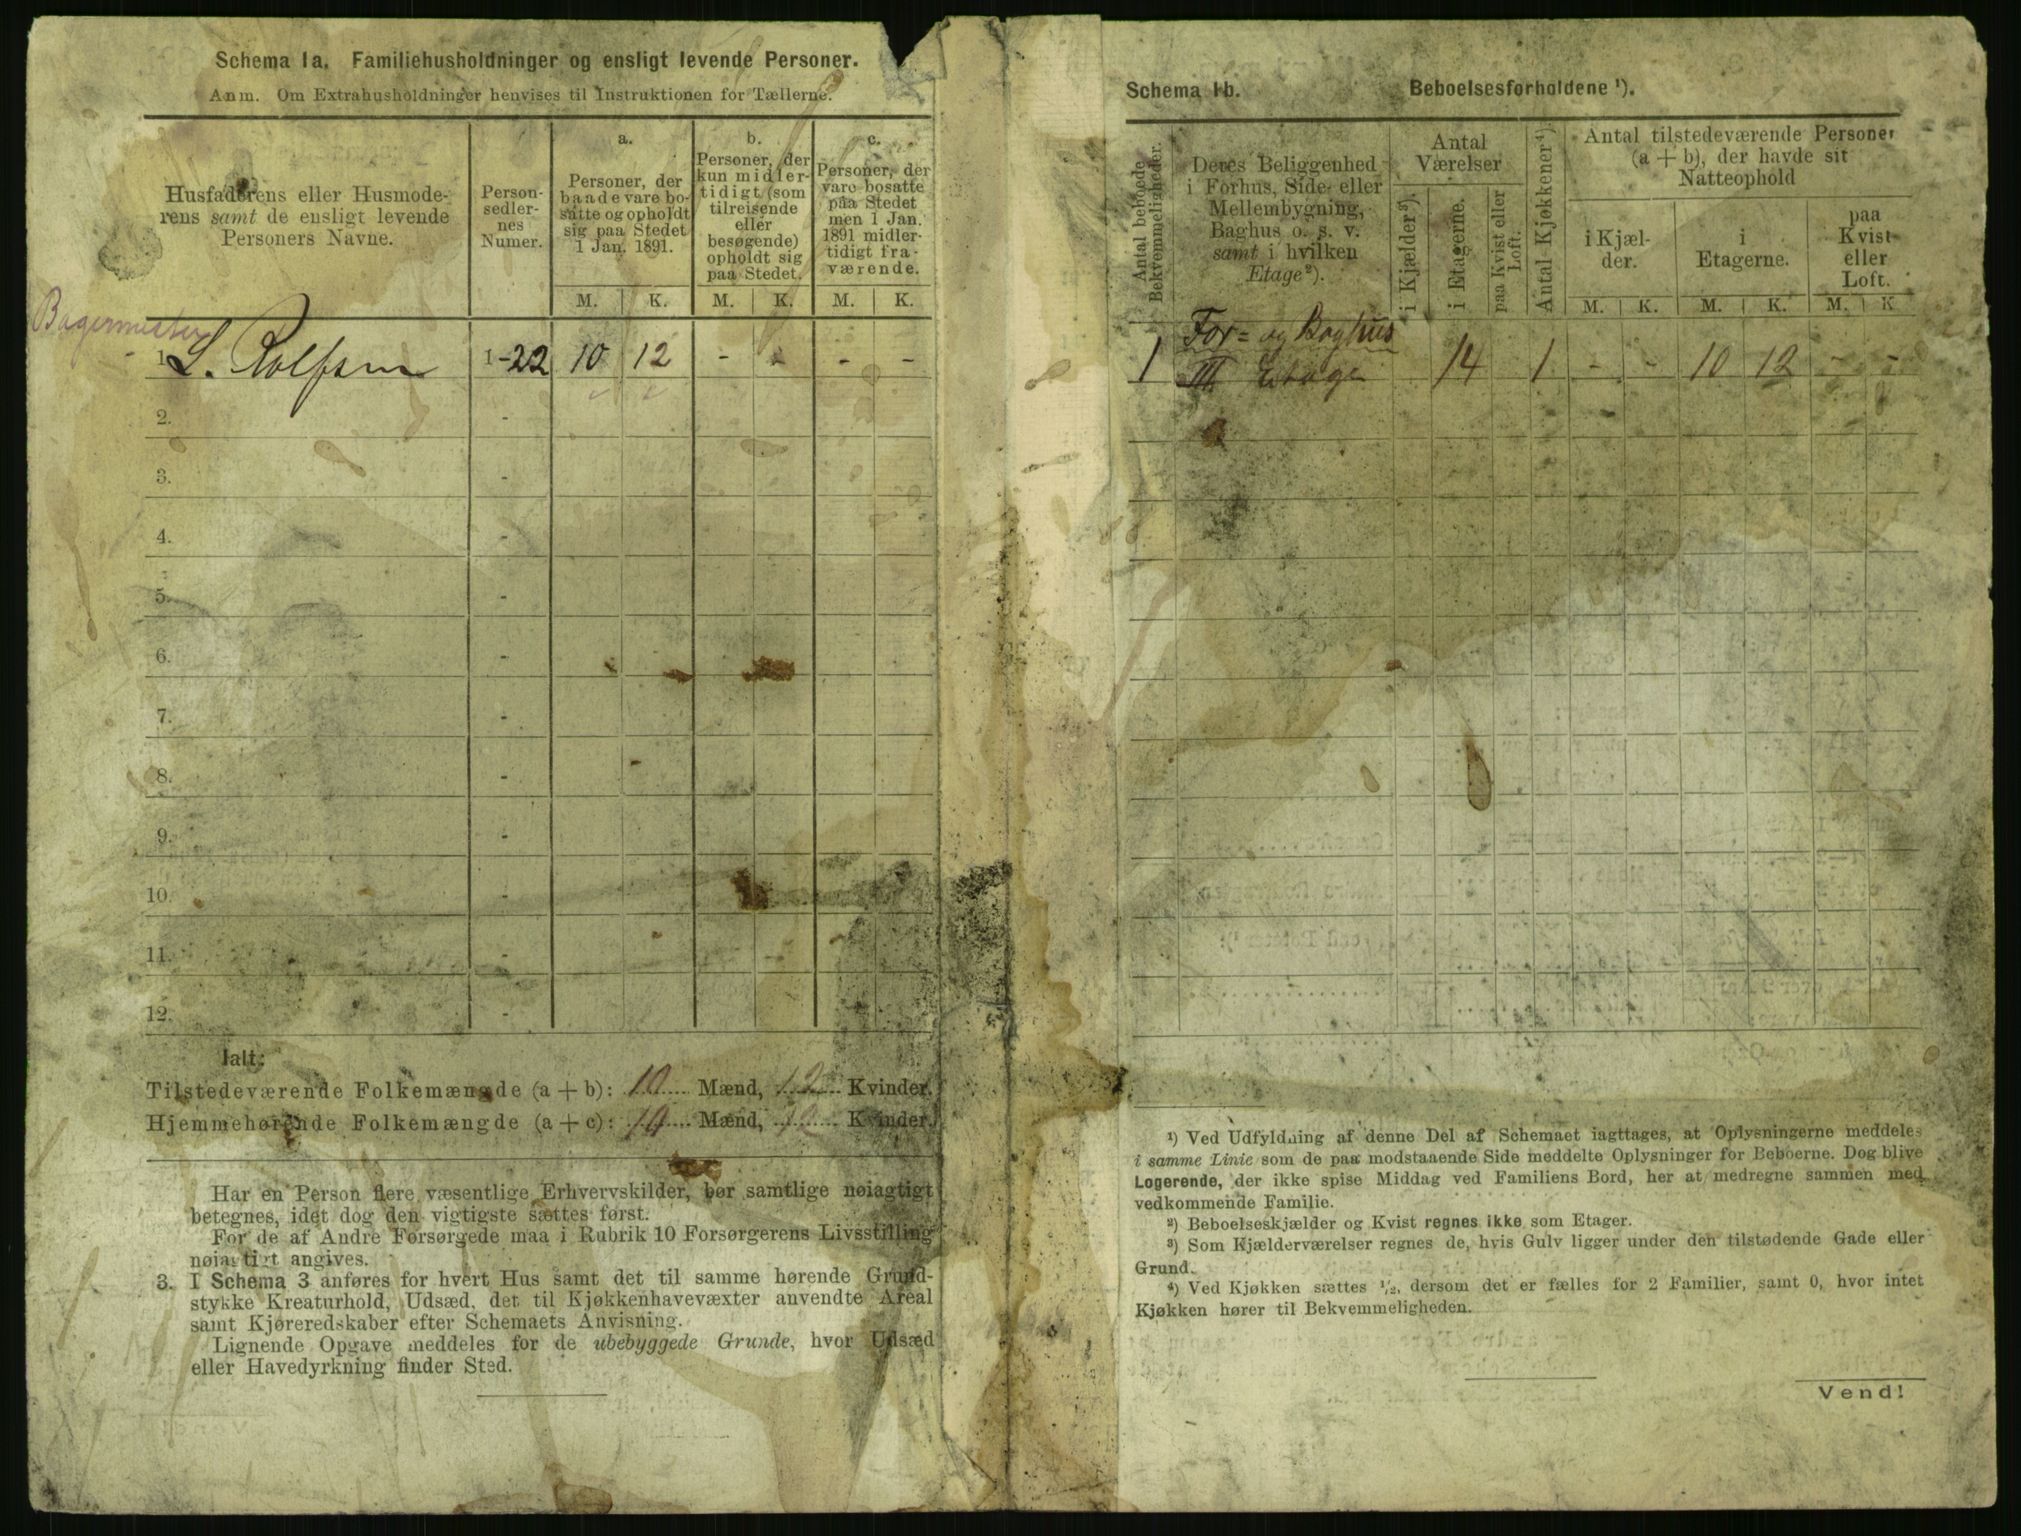 Schema 1a. Familiehusholdninger og ensligt levende Personer.
Anm. Om Extrahusholdninger henvises til Instruktionen for Tællerne.
Husfaderens eller Husmode-
rens samt de ensligt levende
Personers Navne.
Person-
sedler-
nes
Numer.
a.
Personer, der
baade vare bo-
satte og opholdt
sig paa Stedet
1 Jan. 1891.
b.
Personer, der
kun midler-
tidigt (som
tilreisende
eller
besøgende)
opholdt sig
paa Stedet.
c.
Personer, der
vare bosatte
paa Stedet
men 1 Jan.
1891 midler-
tidigt fra-
værende.
M. K. M. K. M. K.
Bagermester
1. L. Rolfsen 1-22 10 12 - - - -
2. -
3. -
4. -
5. -
6. -
7. -
8. -
9. -
10. -
11. -
12. -
Ialt:
Tilstedeværende Folkemængde (a + b): 10 Mænd, 12 Kvinder.
Hjemmehørende Folkemængde (a + c): 10 Mænd, 12 Kvinder.
Har en Person flere væsentlige Erhvervskilder, bør samtlige nøiagtigt
betegnes, idet dog den vigtigste sættes først.
For de af Andre Forsørgede maa i Rubrik 10 Forsørgerens Livsstilling
nøiagtigt angives.
3. I Schema 3 anføres for hvert Hus samt det til samme hørende Grund-
stykke Kreaturhold, Udsæd, det til Kjøkkenhavevæxter anvendte Areal
samt Kjøreredskaber efter Schemaets Anvisning.
Lignende Opgave meddeles for de ubebyggede Grunde, hvor Udsæd
eller Havedyrkning finder Sted.
Schema 1b. Beboelsesforholdene ¹).
Antal beboede
Bekvemmeligheder.
Deres Beliggenhed
i Forhus, Side- eller
Mellembygning,
Baghus o. s. v.
samt i hvilken
Etage ²).
Antal
Værelser
i Kjælder ³).
i Etagerne.
paa Kvist eller
Loft.
Antal Kjøkkener ⁴).
Antal tilstedeværende Personer
(a + b), der havde sit
Natteophold
i Kjæl-
der.
i
Etagerne.
paa
Kvist
eller
Loft.
M. K. M. K. M. K
For= og Baghus
1 III Etage 14 1 - - 10 12 - -
¹) Ved Udfyldning af denne Del af Schemaet iagttages, at Oplysningerne meddeles
i samme Linie som de paa modstaaende Side meddelte Oplysninger for Beboerne. Dog blive
Logerende, der ikke spise Middag ved Familiens Bord, her at medregne sammen med
vedkommende Familie.
²) Beboelseskjælder og Kvist regnes ikke som Etager.
³) Som Kjælderværelser regnes de, hvis Gulv ligger under den tilstødende Gade eller
Grund.
⁴) Ved Kjøkken sættes ½, dersom det er fælles for 2 Familier, samt 0, hvor intet
Kjøkken hører til Bekvemmeligheden.
Vend!